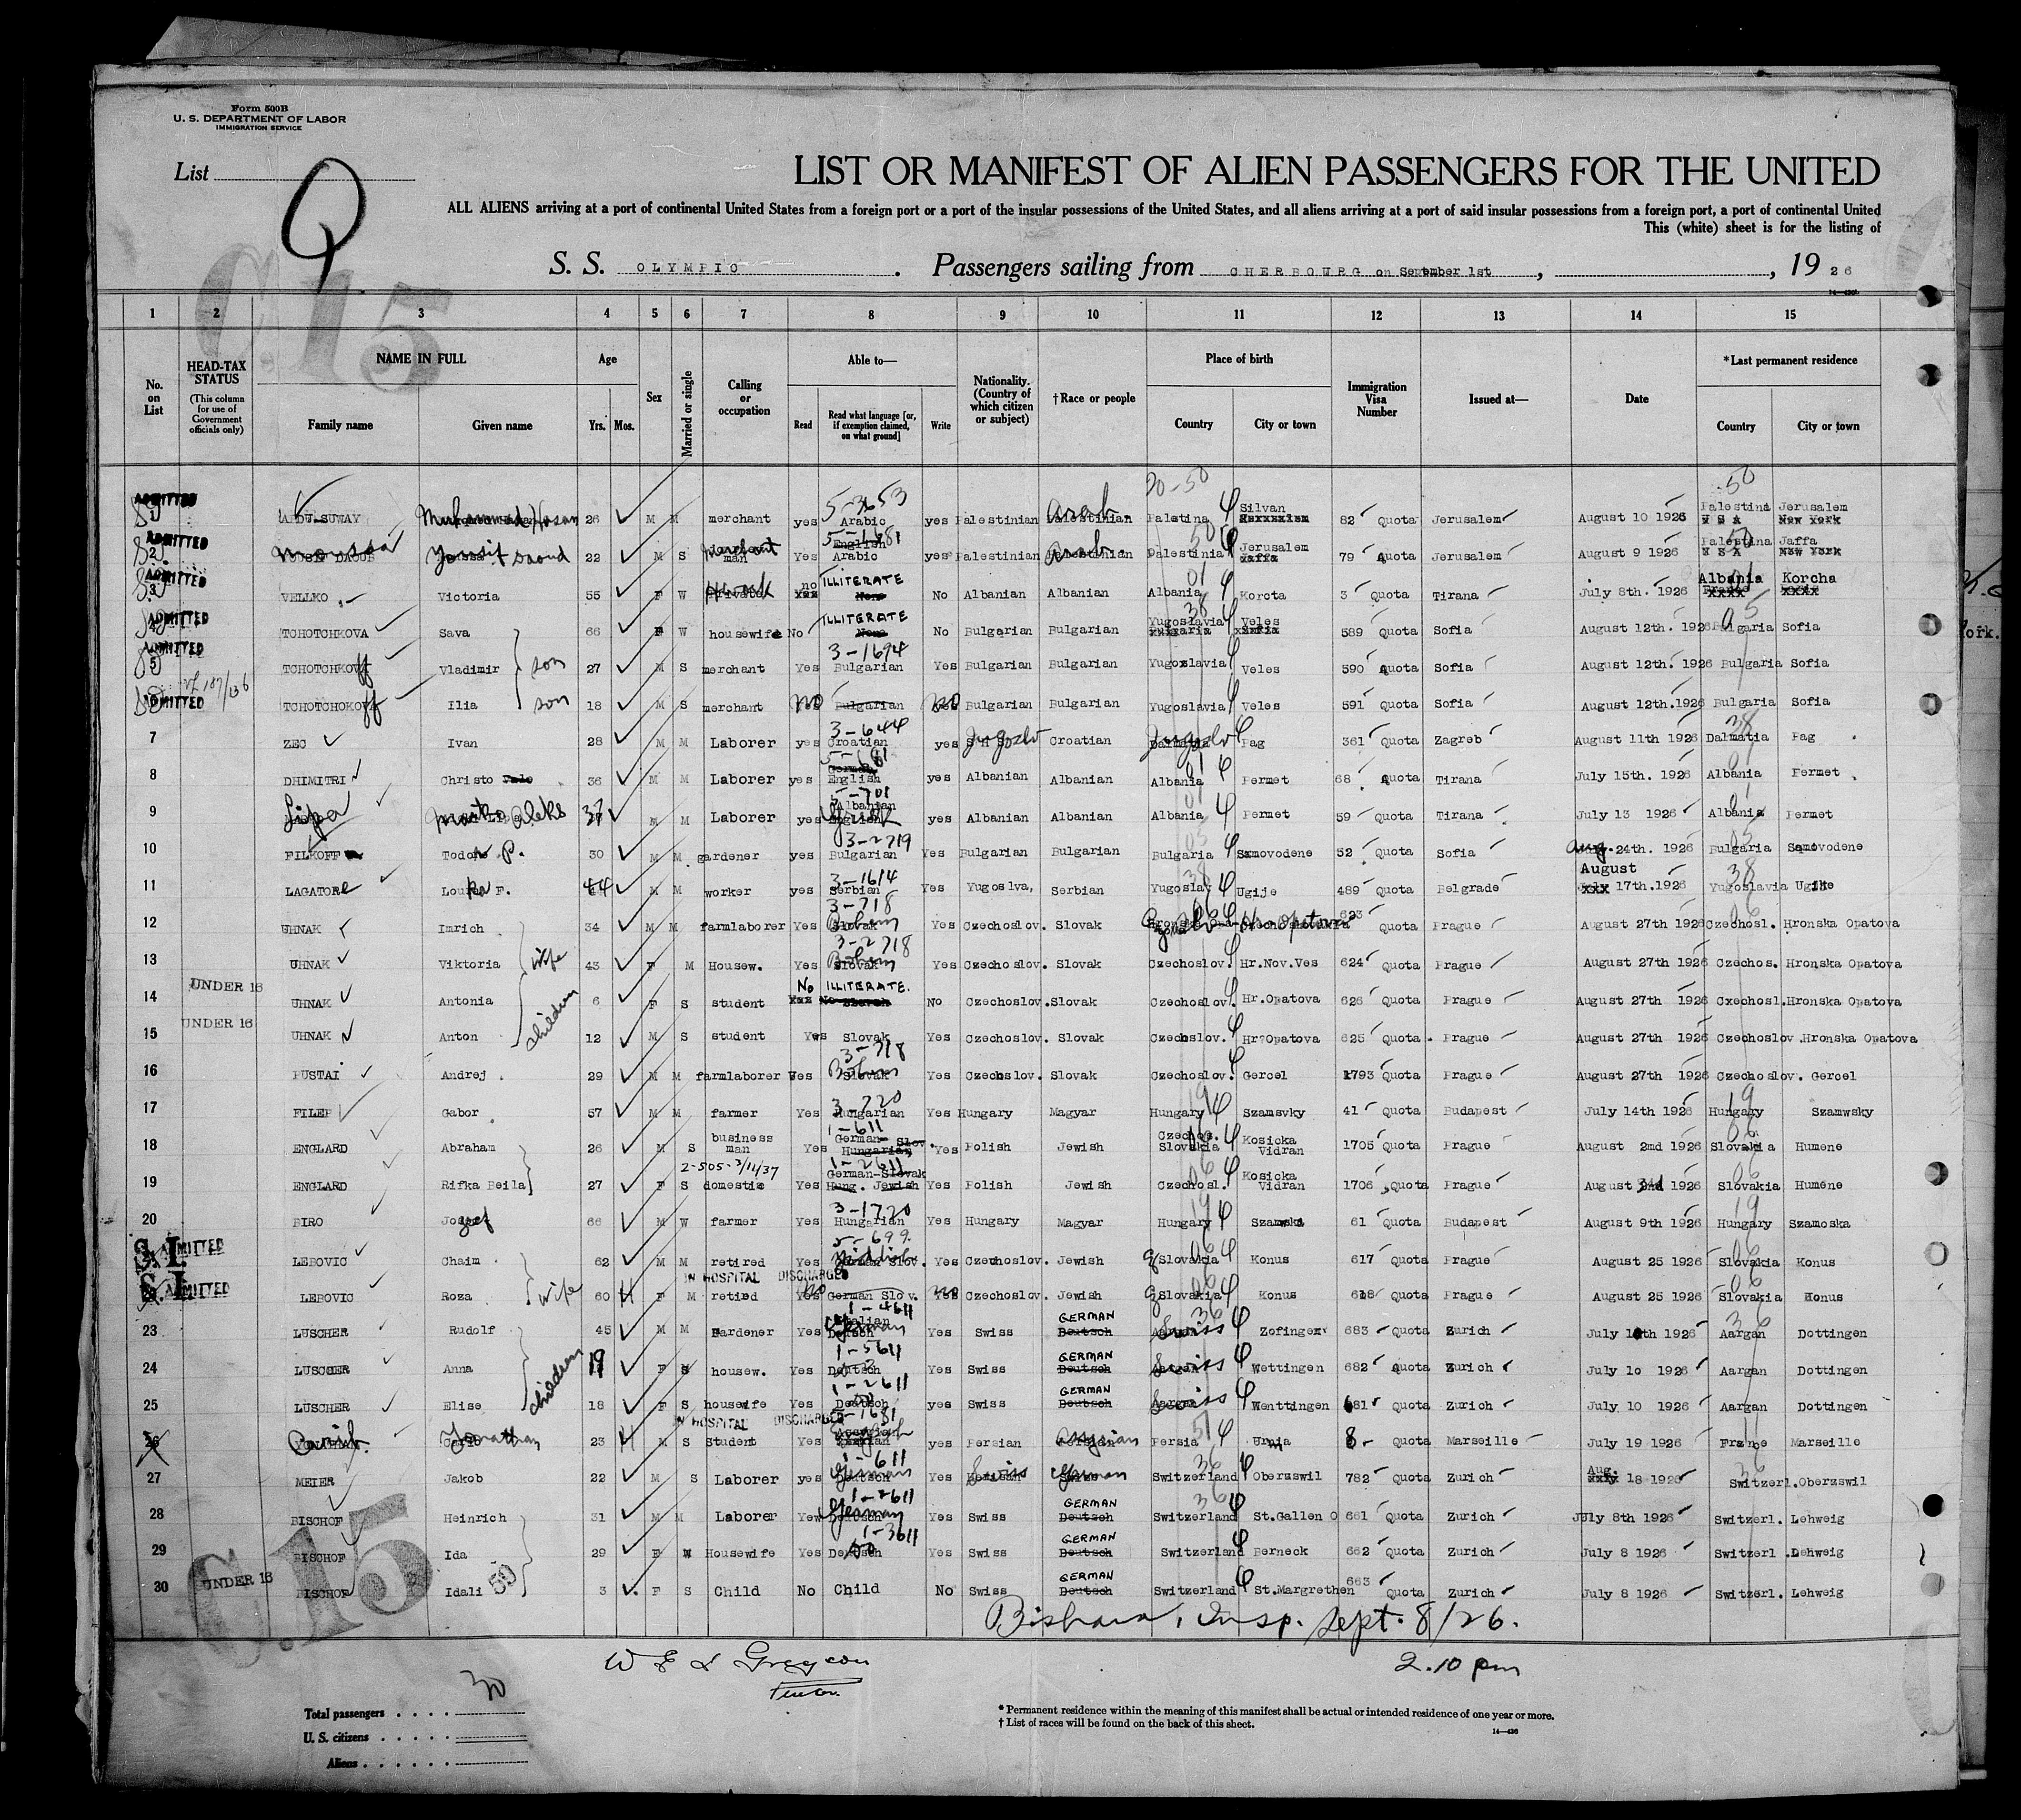 Form 500B
U. S. DEPARTMENT OF LABOR
IMMIGRATION SERVICE
List
Q
C.15
LIST OR MANIFEST OF ALIEN PASSENGERS FOR THE UNITED
ALL ALIENS arriving at a port of continental United States from a foreign port or a port of the insular possessions of the United States, and all aliens arriving at a port of said insular possessions from a foreign port, a port of continental United
This (white) sheet is for the listing of
S. S. OLYMPIC. Passengers sailing from CHERBOURG on September 1st, , 19 26
1 2 3 4 5 6 7 8 9 10 11 12 13 14 15
No. on List
HEAD-TAX STATUS (This column for use of Government officials only)
NAME IN FULL Family name Given name
Age Yrs. Mos.
Sex
Married or single
Calling or occupation
Able to— Read Read what language [or, if exemption claimed, on what ground] Write
Nationality. (Country of which citizen or subject)
†Race or people
Place of birth Country City or town
Immigration Visa Number
Issued at—
Date
*Last permanent residence Country City or town
20-50 50
ADMITTED 1 ABDU-SUWAY Muhammad Hasan 26 M M merchant yes 5-3653 Arabic yes Palestinian Arab Palestina Silvan 82 Quota Jerusalem August 10 1926 Palestina Jerusalem
ADMITTED 2 Yousif Daoud 22 M S merchant Yes Arabic yes Palestinian Arab Palestinia Jerusalem 79 Quota Jerusalem August 9 1926 Palestina Jaffa
ADMITTED 3 VELLKO Victoria 55 F W no ILLITERATE No Albanian Albanian Albania Korcta 3 Quota Tirana July 8th. 1926 Albania Korcha
ADMITTED 4 TCHOTCHKOVA Sava 66 F W housewife No ILLITERATE No Bulgarian Bulgarian Yugoslavia Veles 589 Quota Sofia August 12th. 1926 Bulgaria Sofia
ADMITTED 5 TCHOTCHKOVff Vladimir son 27 M S merchant Yes 3-1694 Bulgarian Yes Bulgarian Bulgarian Yugoslavia Veles 590 Quota Sofia August 12th. 1926 Bulgaria Sofia
ADMITTED TCHOTCHOKOVff Ilia son 18 M S merchant No Bulgarian No Bulgarian Bulgarian Yugoslavia Veles 591 Quota Sofia August 12th.1926 Bulgaria Sofia
7 ZEC Ivan 28 M M Laborer yes 3-644 Croatian yes Jugoslv Croatian Jugoslv Pag 361 Quota Zagreb August 11th 1926 Dalmatia Pag
8 DHIMITRI Christo 36 M M Laborer yes 5-681 English yes Albanian Albanian Albania Permet 68 Quota Tirana July 15th. 1926 Albania Permet
9 Lipa Aleks 37 M M Laborer yes 5-701 Albanian Greek yes Albanian Albanian Albania Permet 59 Quota Tirana July 13 1926 Albania Permet
10 FILKOFF P. 30 M M gardener yes 3-2719 Bulgarian Yes Bulgarian Bulgarian Bulgaria Samovodene 52 Quota Sofia Aug. 24th. 1926 Bulgaria Samovodene
11 LAGATORE F. 44 M M worker yes 3-1614 Serbian Yes Yugoslva, Serbian Yugoslav Ugije 489 Quota Belgrade August 17th.1926 Yugoslavia
12 UHNAK Imrich 34 M M farmlaborer Yes 3-718 Slovak Yes Czechoslov. Slovak Hr. Opatova 623 Quota Prague August 27th 1926 Czechosl. Hronska Opatova
13 UHNAK Viktoria wife 43 F M Housew. Yes 3-2718 Slovak Yes Czechoslov. Slovak Czechoslov. Hr.Nov.Ves 624 Quota Prague August 27th 1926 Czechos. Hronska Opatova
14 UNDER 16 UHNAK Antonia children 6 F S student No ILLITERATE. No Czechoslov. Slovak Czechoslov. Hr.Opatova 626 Quota Prague August 27th 1926 Cxechosl.Hronska Opatova
15 UNDER 16 UHNAK Anton 12 M S student Yes Slovak Yes Czechoslov. Slovak Czechoslov. Hr.Opatova 625 Quota Prague August 27th 1926 Czechoslov.Hronska Opatova
16 PUSTAI Andrej 29 M M farmlaborer Yes 3-718 Slovak Yes Czechoslov. Slovak Czechoslov. Gercel 1793 Quota Prague August 27th 1926 Czechoslov. Gercel
17 FILEP Gabor 57 M M farmer Yes 3-720 Hungarian Yes Hungary Magyar Hungary Szamsvky 41 Quota Budapest July 14th 1926 Hungary Szamwsky
18 ENGLARD Abraham 26 M S business man Yes 1-611 German-Slov. Hungarian Yes Polish Jewish Czechos. Slovakia Kosicka Vidran 1705 Quota Prague August 2md 1926 Slovakia Humene
2-505-3/11/37
19 ENGLARD Rifka Beila 27 F S domestic Yes 1-2611 German-Slovak Hung. Jewish Yes Polish Jewish Czechosl. Kosicka Vidran 1706 Quota Prague August 1926 Slovakia Humene
20 BIRO Jozsef 66 M W farmer Yes 3-1720 Hungarian Yes Hungary Magyar Hungary 61 Quota Budapest August 9th 1926 Hungary Szamoska
S.I. ADMITTED LEBOVIC Chaim 62 M M retired Yes Yiddish Yes Czechoslov. Jewish Slovakia Konus 617 Quota Prague August 25 1926 Slovakia Konus
IN HOSPITAL DISCHARGED
S.I. ADMITTED LEBOVIC Roza wife 60 F M retird No German Slov. No Czechoslov. Jewish Slovakia Konus 618 Quota Prague August 25 1926 Slovakia Konus
23 LUSCHER Rudolf 45 M M Gardener Yes 1-4611 German Yes Swiss GERMAN Swiss Zofingen 683 Quota Zurich July 1926 Aargan Dottingen
24 LUSCHER Anna children 19 F S housew. Yes 1-5611 Deutsch Yes Swiss GERMAN Swiss Wettingen 682 Quota Zurich July 10 1926 Aargan Dottingen
25 LUSCHER Elise 18 F S housewife Yes 1-2611 Deutsch yes Swiss GERMAN Swiss Wenttingen 681 Quota Zurich July 10 1926 Aargan Dottingen
IN HOSPITAL DISCHARGED
26 Jonathan 23 M S Student Yes 5-1681 yes Persian Assyrian Persia Urmia 8 Quota Marseille July 19 1926 France Marseille
27 MEIER Jakob 22 M S Laborer yes 1-611 German Yes Swiss German Switzerland Oberzswil 782 Quota Zurich Aug. 18 1926 Switzerl.Oberzswil
28 BISCHOF Heinrich 31 M M Laborer Yes 1-2611 German Yes Swiss GERMAN Switzerland St.Gallen O 661 Quota Zurich July 8th 1926 Switzerl. Lehweig
29 BISCHOF Ida 29 F M Housewife Yes 1-3611 Deutsch Yes Swiss GERMAN Switzerland Berneck 662 Quota Zurich July 8 1926 Switzerl. Lehweig
30 UNDER 16 BISCHOF Idali 3 F S Child No Child No Swiss GERMAN Switzerland St.Margrethen 663 Quota Zurich July 8 1926 Switzerl. Lehweig
C.15
Bishara, Insp. Sept. 8/26.
2.10 pm
Total passengers . . . . 30
U. S. citizens . . . . .
Aliens . . . . . . .
* Permanent residence within the meaning of this manifest shall be actual or intended residence of one year or more.
† List of races will be found on the back of this sheet.
14—436